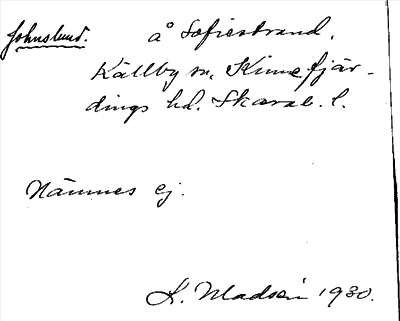 Johnslund. å Sofiestrand,
Källby sn, Kinnefjär-
dings hd. Skarab. l.
Nämnes ej.
K. Madsén 1930.